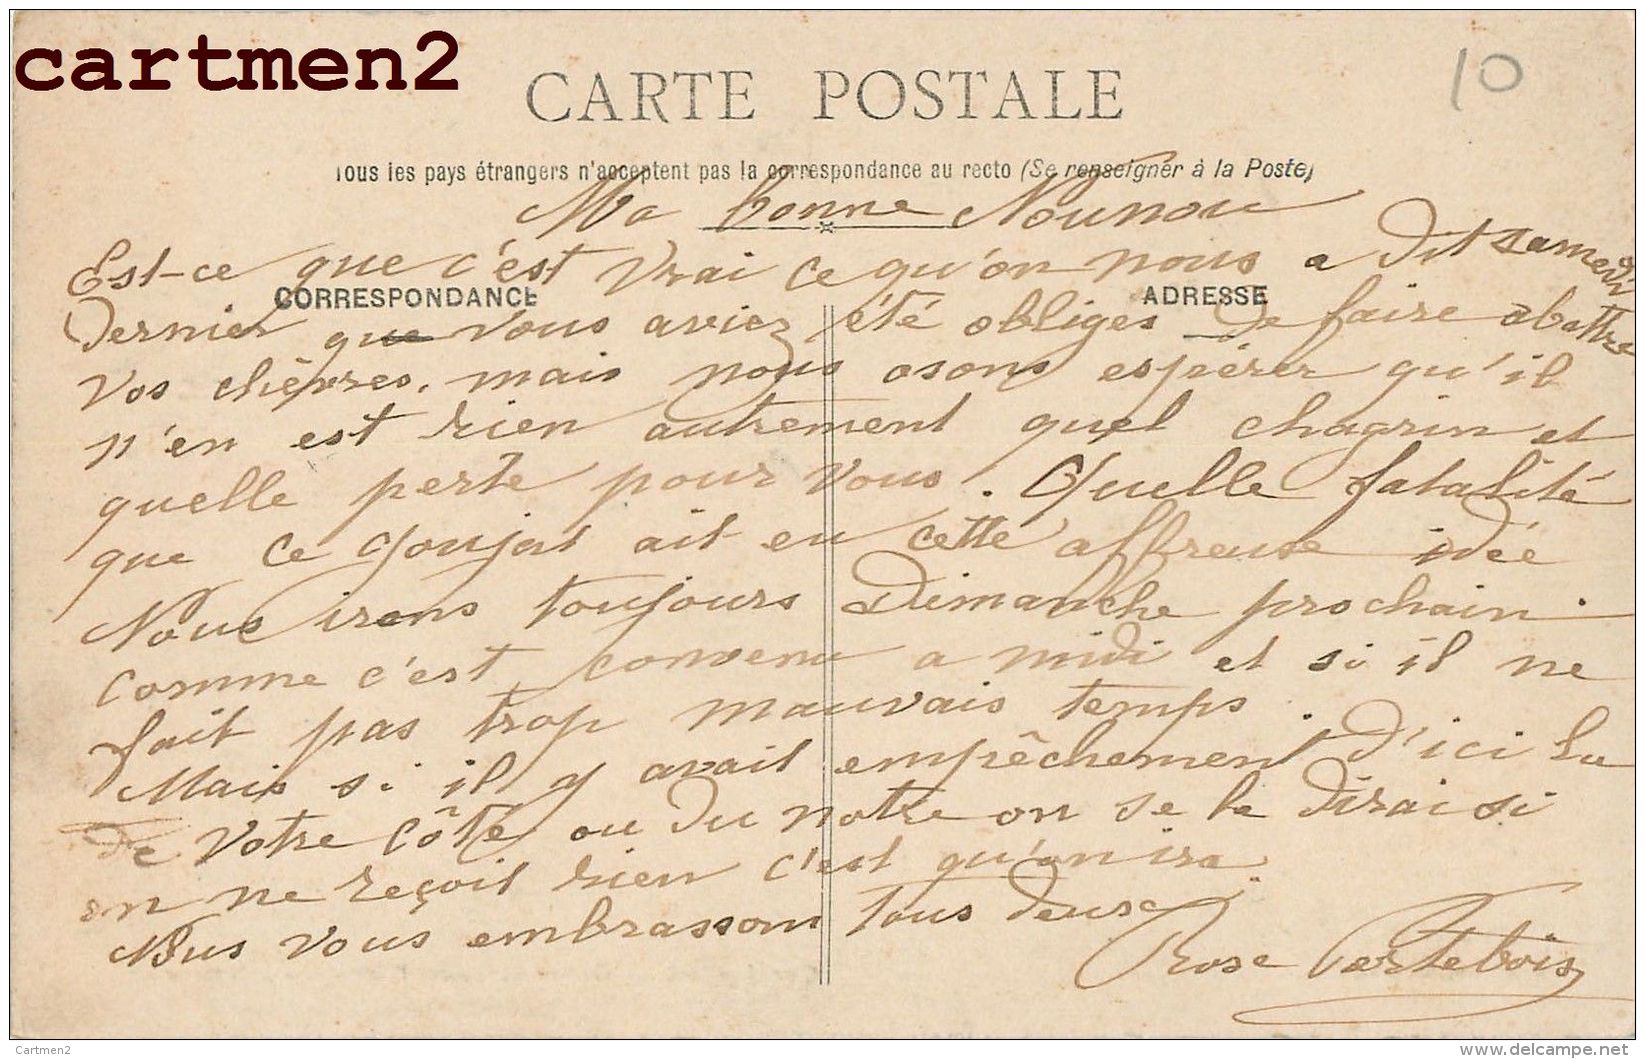 cartmen2
10
CARTE POSTALE
Tous les pays étrangers n'acceptent pas la correspondance au recto (Se renseigner à la Poste)
Ma bonne Nounou
Est-ce que c'est vrai ce qu'on nous a dit samedi
CORRESPONDANCE
ADRESSE
dernier que vous aviez été obliges de faire abattre
vos chèvres, mais nous osons espérer qu'il
n'en est rien autrement quel chagrin et
quelle perte pour vous. Quelle fatalité
que ce goujat ait eu cette affreuse idée
Nous irons toujours Dimanche prochain
comme c'est convenu a midi et si il ne
fait pas trop mauvais temps.
Mais si il y avait empêchement d'ici la
de votre côté ou du notre on se le dirai si
on ne reçoit rien c'est qu'on ira.
Nous vous embrassons tous deux
Rose Pertebois
Cartmen2
www.delcampe.net